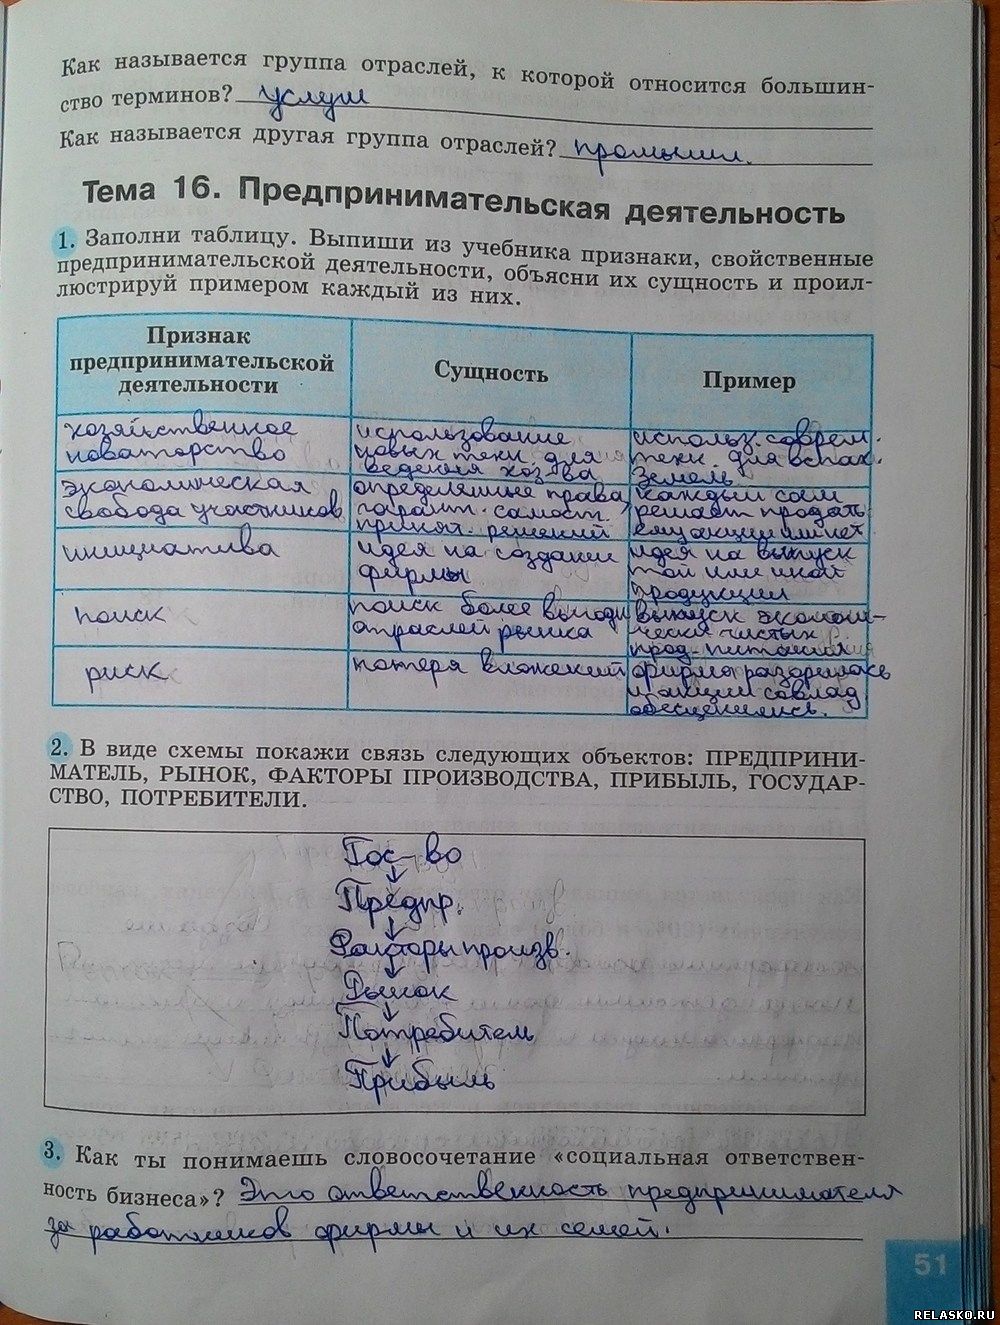 Как называется группа отраслей, к которой относится большин-
ство терминов? услуги
Как называется другая группа отраслей? промышл.
Тема 16. Предпринимательская деятельность
1. Заполни таблицу. Выпиши из учебника признаки, свойственные
предпринимательской деятельности, объясни их сущность и проил-
люстрируй примером каждый из них.
Признак
предпринимательской
деятельности
Сущность
Пример
хозяйственное
новаторство
использование
новых техн. для
ведения хоз-ва
использ. соврем.
техн. для вспах.
земель
экономическая
свобода участников
определённые права,
гарант. самост.
принят. решений
каждый сам
решает продать
ему акции или нет
инициатива
идея на создании
фирмы
идея на выпуск
той или иной
продукции
поиск
поиск более выгодн
отраслей рынка
выпуск экологи-
чески чистых
прод. питания
риск
потеря вложений
фирма разорилась
и акции совлад
обесценились.
2. В виде схемы покажи связь следующих объектов: ПРЕДПРИНИ-
МАТЕЛЬ, РЫНОК, ФАКТОРЫ ПРОИЗВОДСТВА, ПРИБЫЛЬ, ГОСУДАР-
СТВО, ПОТРЕБИТЕЛИ.
Гос-во
Предпр.
Факторы произв.
Рынок
Потребитель
Прибыль
3. Как ты понимаешь словосочетание «социальная ответствен-
ность бизнеса»? Это ответственность предпринимателя
за работников фирмы и их семей.
51
RELASKO.RU